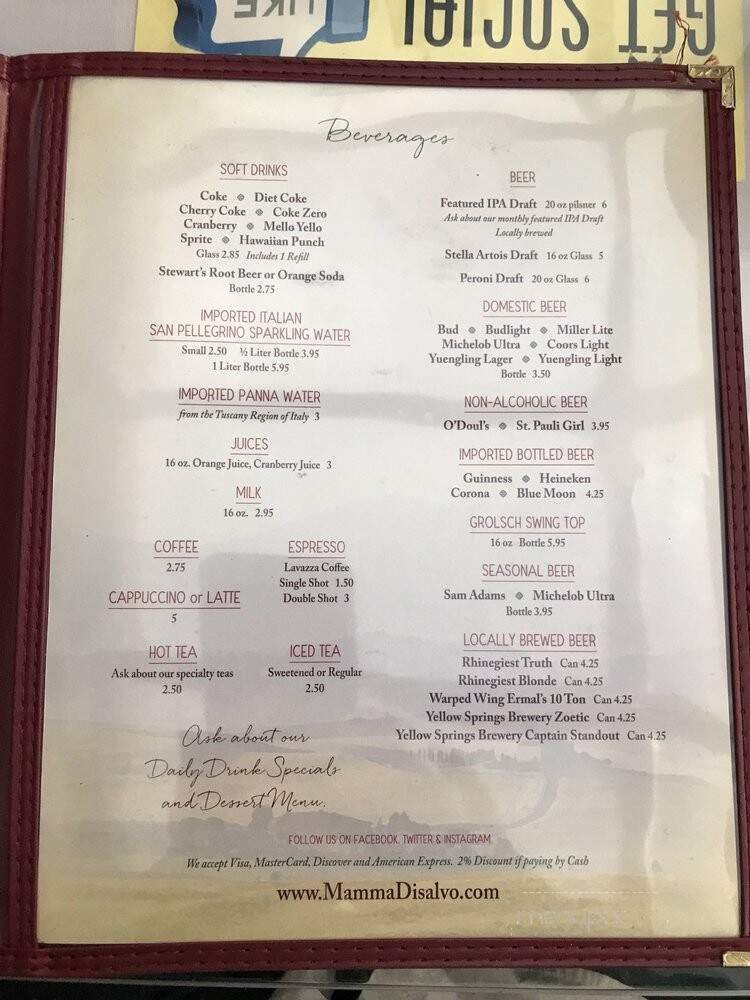 GET SOCIAL
LIKE
Beverages
SOFT DRINKS
Coke ❖ Diet Coke
Cherry Coke ❖ Coke Zero
Cranberry ❖ Mello Yello
Sprite ❖ Hawaiian Punch
Glass 2.85 Includes 1 Refill
Stewart's Root Beer or Orange Soda
Bottle 2.75
IMPORTED ITALIAN
SAN PELLEGRINO SPARKLING WATER
Small 2.50 ½ Liter Bottle 3.95
1 Liter Bottle 5.95
IMPORTED PANNA WATER
from the Tuscany Region of Italy 3
JUICES
16 oz. Orange Juice, Cranberry Juice 3
MILK
16 oz. 2.95
COFFEE
2.75
CAPPUCCINO or LATTE
5
ESPRESSO
Lavazza Coffee
Single Shot 1.50
Double Shot 3
HOT TEA
Ask about our specialty teas
2.50
ICED TEA
Sweetened or Regular
2.50
Ask about our
Daily Drink Specials
and Dessert Menu.
BEER
Featured IPA Draft 20 oz pilsner 6
Ask about our monthly featured IPA Draft
Locally brewed
Stella Artois Draft 16 oz Glass 5
Peroni Draft 20 oz Glass 6
DOMESTIC BEER
Bud ❖ Budlight ❖ Miller Lite
Michelob Ultra ❖ Coors Light
Yuengling Lager ❖ Yuengling Light
Bottle 3.50
NON-ALCOHOLIC BEER
O'Doul's ❖ St. Pauli Girl 3.95
IMPORTED BOTTLED BEER
Guinness ❖ Heineken
Corona ❖ Blue Moon 4.25
GROLSCH SWING TOP
16 oz Bottle 5.95
SEASONAL BEER
Sam Adams ❖ Michelob Ultra
Bottle 3.95
LOCALLY BREWED BEER
Rhinegiest Truth Can 4.25
Rhinegiest Blonde Can 4.25
Warped Wing Ermal's 10 Ton Can 4.25
Yellow Springs Brewery Zoetic Can 4.25
Yellow Springs Brewery Captain Standout Can 4.25
FOLLOW US ON FACEBOOK, TWITTER & INSTAGRAM
We accept Visa, MasterCard, Discover and American Express. 2% Discount if paying by Cash
www.MammaDisalvo.com